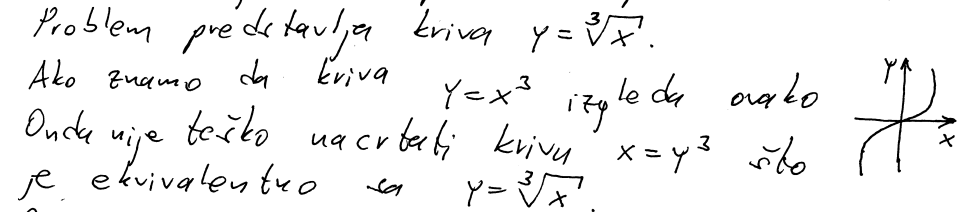 Problem predstavlja kriva y = ∛x.
Ako znamo da kriva y = x³ izgleda ovako
Onda nije teško nacrtati krivu x = y³ što
je ekvivalentno sa y = ∛x.
y
x